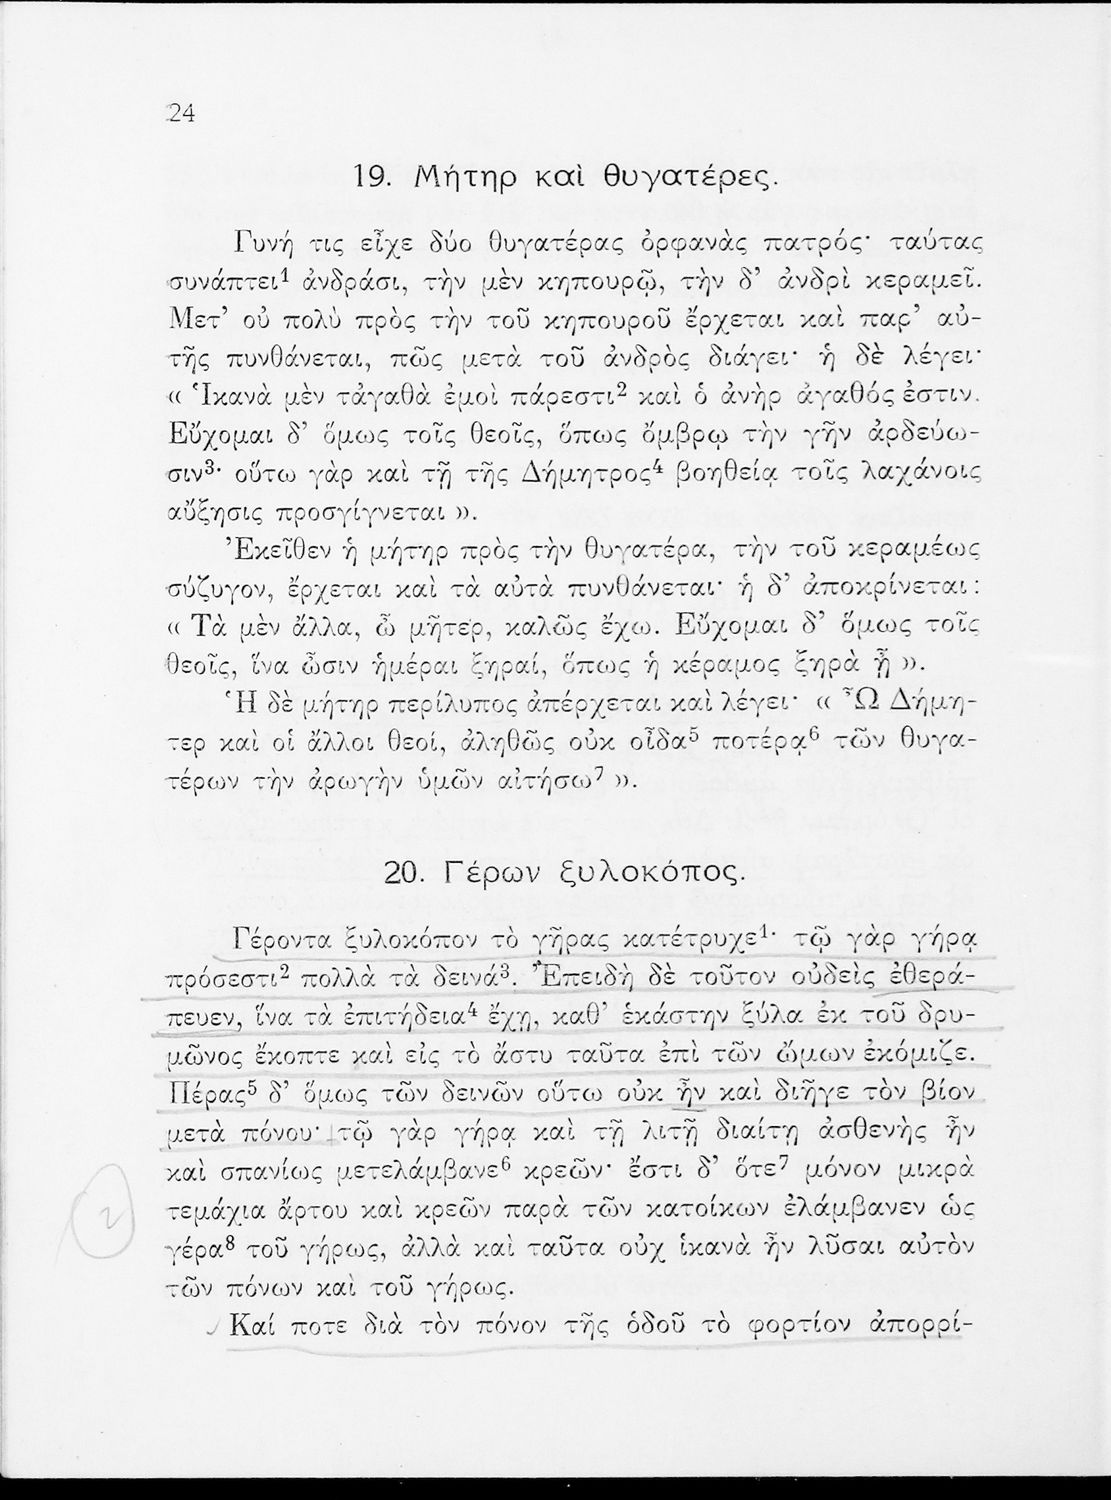 24
19. Μήτηρ καὶ θυγατέρες.
Γυνή τις εἶχε δύο θυγατέρας ὀρφανὰς πατρός· ταύτας
συνάπτει¹ ἀνδράσι, τὴν μὲν κηπουρῷ, τὴν δ’ ἀνδρὶ κεραμεῖ.
Μετ’ οὐ πολὺ πρὸς τὴν τοῦ κηπουροῦ ἔρχεται καὶ παρ’ αὐ-
τῆς πυνθάνεται, πῶς μετὰ τοῦ ἀνδρὸς διάγει· ἡ δὲ λέγει·
« Ἱκανὰ μὲν τἀγαθὰ ἐμοὶ πάρεστι² καὶ ὁ ἀνὴρ ἀγαθός ἐστιν.
Εὔχομαι δ’ ὅμως τοῖς θεοῖς, ὅπως ὄμβρῳ τὴν γῆν ἀρδεύω-
σιν³· οὕτω γὰρ καὶ τῇ τῆς Δήμητρος⁴ βοηθείᾳ τοῖς λαχάνοις
αὔξησις προσγίγνεται ».
Ἐκεῖθεν ἡ μήτηρ πρὸς τὴν θυγατέρα, τὴν τοῦ κεραμέως
σύζυγον, ἔρχεται καὶ τὰ αὐτὰ πυνθάνεται· ἡ δ’ ἀποκρίνεται :
« Τὰ μὲν ἄλλα, ὦ μῆτερ, καλῶς ἔχω. Εὔχομαι δ’ ὅμως τοῖς
θεοῖς, ἵνα ὦσιν ἡμέραι ξηραί, ὅπως ἡ κέραμος ξηρὰ ᾖ ».
Ἡ δὲ μήτηρ περίλυπος ἀπέρχεται καὶ λέγει· « Ὦ Δήμη-
τερ καὶ οἱ ἄλλοι θεοί, ἀληθῶς οὐκ οἶδα⁵ ποτέρᾳ⁶ τῶν θυγα-
τέρων τὴν ἀρωγὴν ὑμῶν αἰτήσω⁷ ».
20. Γέρων ξυλοκόπος.
Γέροντα ξυλοκόπον τὸ γῆρας κατέτρυχε¹· τῷ γὰρ γήρᾳ
πρόσεστι² πολλὰ τὰ δεινά³. Ἐπειδὴ δὲ τοῦτον οὐδεὶς ἐθερά-
πευεν, ἵνα τὰ ἐπιτήδεια⁴ ἔχῃ, καθ’ ἑκάστην ξύλα ἐκ τοῦ δρυ-
μῶνος ἔκοπτε καὶ εἰς τὸ ἄστυ ταῦτα ἐπὶ τῶν ὤμων ἐκόμιζε.
Πέρας⁵ δ’ ὅμως τῶν δεινῶν οὕτω οὐκ ἦν καὶ διῆγε τὸν βίον
μετὰ πόνου· τῷ γὰρ γήρᾳ καὶ τῇ λιτῇ διαίτῃ ἀσθενὴς ἦν
καὶ σπανίως μετελάμβανε⁶ κρεῶν· ἔστι δ’ ὅτε⁷ μόνον μικρὰ
τεμάχια ἄρτου καὶ κρεῶν παρὰ τῶν κατοίκων ἐλάμβανεν ὡς
γέρα⁸ τοῦ γήρως, ἀλλὰ καὶ ταῦτα οὐχ ἱκανὰ ἦν λῦσαι αὐτὸν
2
τῶν πόνων καὶ τοῦ γήρως.
Καί ποτε διὰ τὸν πόνον τῆς ὁδοῦ τὸ φορτίον ἀπορρί-